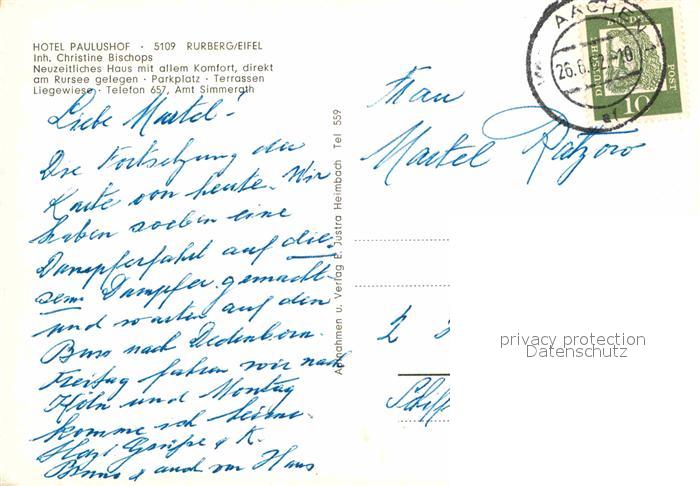 HOTEL PAULUSHOF · 5109 RURBERG/EIFEL
Inh. Christine Bischops
Neuzeitliches Haus mit allem Komfort, direkt
am Rursee gelegen · Parkplatz · Terrassen
Liegewiese · Telefon 657, Amt Simmerath
Liebe Martel!
Die Fortsetzung der
Karte von heute. Wir
haben soeben eine
Dampferfahrt auf die-
sem Dampfer gemacht
und warten auf den
Bus nach Dedenborn.
Freitag fahren wir nach
Köln und Montag
komme ich heim.
Grüße
Bruno & auch von Haus
Aufnahmen u. Verlag E. Justra Heimbach Tel 559
AACHEN
26.6.
DEUTSCHE BUNDESPOST
10
Frau
Martel Ratzow
2
Schiff
privacy protection
Datenschutz